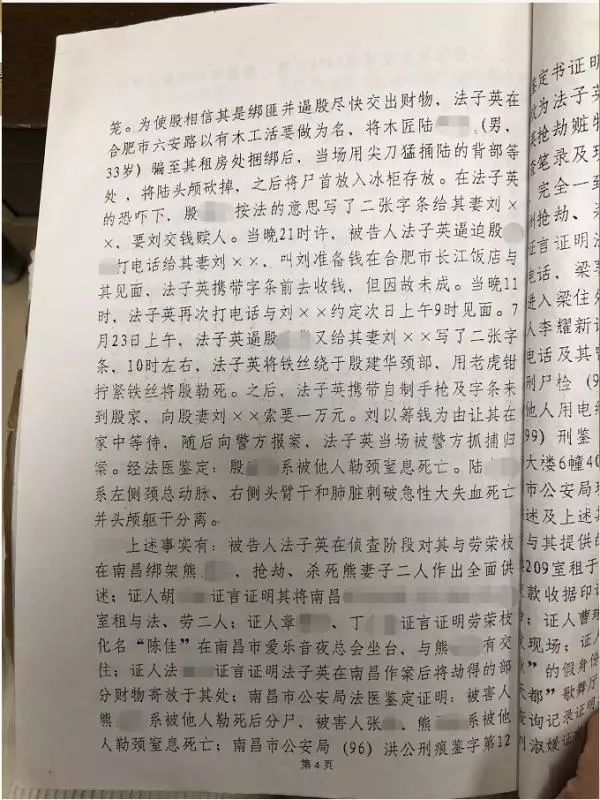 笼。为使殷相信其是绑匪并逼殷尽快交出财物，法子英在
合肥市六安路以有木工活要做为名，将木匠陆（男，
33岁）骗至其租房处捆绑后，当场用尖刀猛捅陆的背部等
处，将陆头颅砍掉，之后将尸首放入冰柜存放。在法子英
的恐吓下，殷 按法的意思写了二张字条给其妻刘×
×，要刘交钱赎人。当晚21时许，被告人法子英逼迫殷
打电话给其妻刘××，叫刘准备钱在合肥市长江饭店与
其见面，法子英携带字条前去收钱，但因故未成。当晚11
时，法子英再次打电话与刘××约定次日上午9时见面。7
月23日上午，法子英逼殷 又给其妻刘××写了二张字
条，10时左右，法子英将铁丝绕于殷建华颈部，用老虎钳
拧紧铁丝将殷勒死。之后，法子英携带自制手枪及字条来
到殷家，向殷妻刘××索要一万元。刘以筹钱为由让其在
家中等待，随后向警方报案，法子英当场被警方抓捕归
案。经法医鉴定：殷 系被他人勒颈窒息死亡。陆
系左侧颈总动脉、右侧头臂干和肺脏刺破急性大失血死亡
并头颅躯干分离。
上述事实有：被告人法子英在侦查阶段对其与劳荣枝
在南昌绑架熊 、抢劫、杀死熊妻子二人作出全面供
述；证人胡 证言证明其将南昌
室租与法、劳二人；证人章 、丁 证言证明劳荣枝
化名“陈佳”在南昌市爱乐音夜总会坐台，与熊 有交
往；证人法 证言证明法子英在南昌作案后将劫得的部
分财物寄放于其处；南昌市公安局法医鉴定证明：被害人
熊 系被他人勒死后分尸，被害人张 、熊 系被他
人勒颈窒息死亡；南昌市公安局（96）洪公刑痕鉴字第12
第4页
鉴定书证明
为法子英
抢劫赃物
查笔录及现
完全一到
州抢劫、
证言证明法
电话、梁
进入梁住处
人李耀新
电话及其
刑尸检（
他人用电
99）刑鉴
大楼6幢40
市公安局
述及上述
与其提供的
209室租于
款收据印证
；证人曹
发现场；
”的假身份
都”歌舞厅
查询记录证明
刘淑媛证